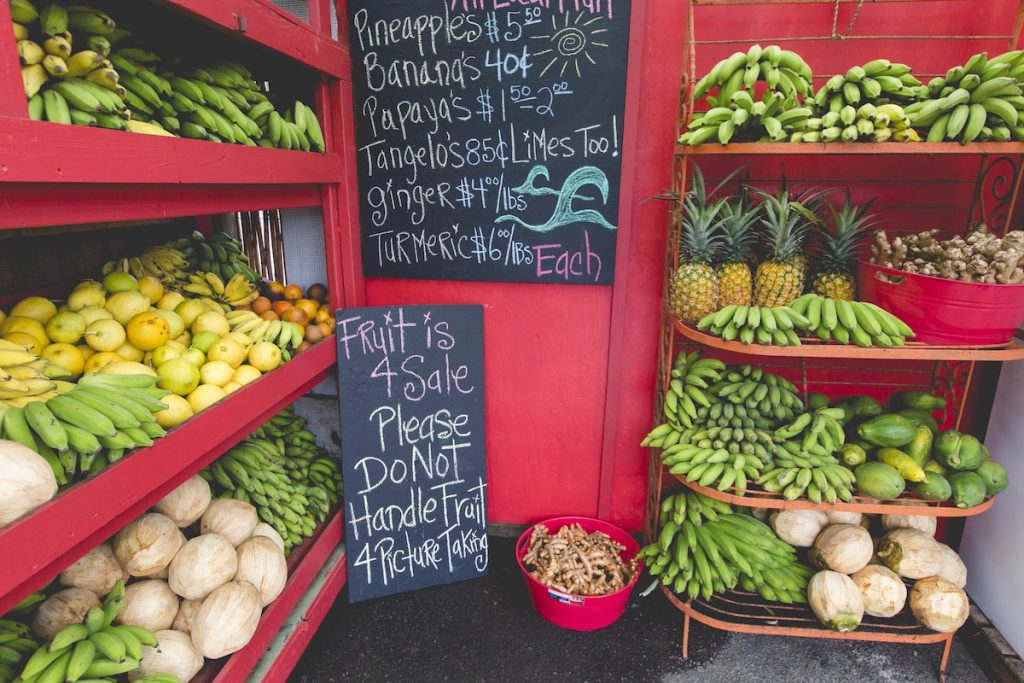 All Local Fruit
Pineapple's $5.50
Banana's 40¢
Papaya's $1.50-2.00
Tangelo's 85¢ Limes Too!
ginger $4.00/lbs
Turmeric $6.00/lbs
Each
Fruit is
4 Sale
Please
Do Not
Handle Fruit
4 Picture Taking